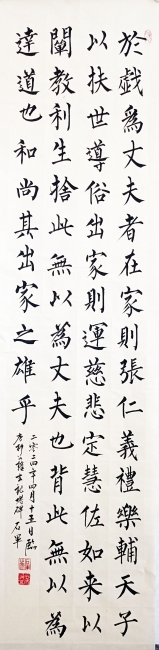 於戲為丈夫者在家則張仁義禮樂輔天子
以扶世導俗出家則運慈悲定慧佐如來以
闡教利生捨此無以為丈夫也背此無以為
達道也和尚其出家之雄乎
二零二四年四月十五日臨
石軍